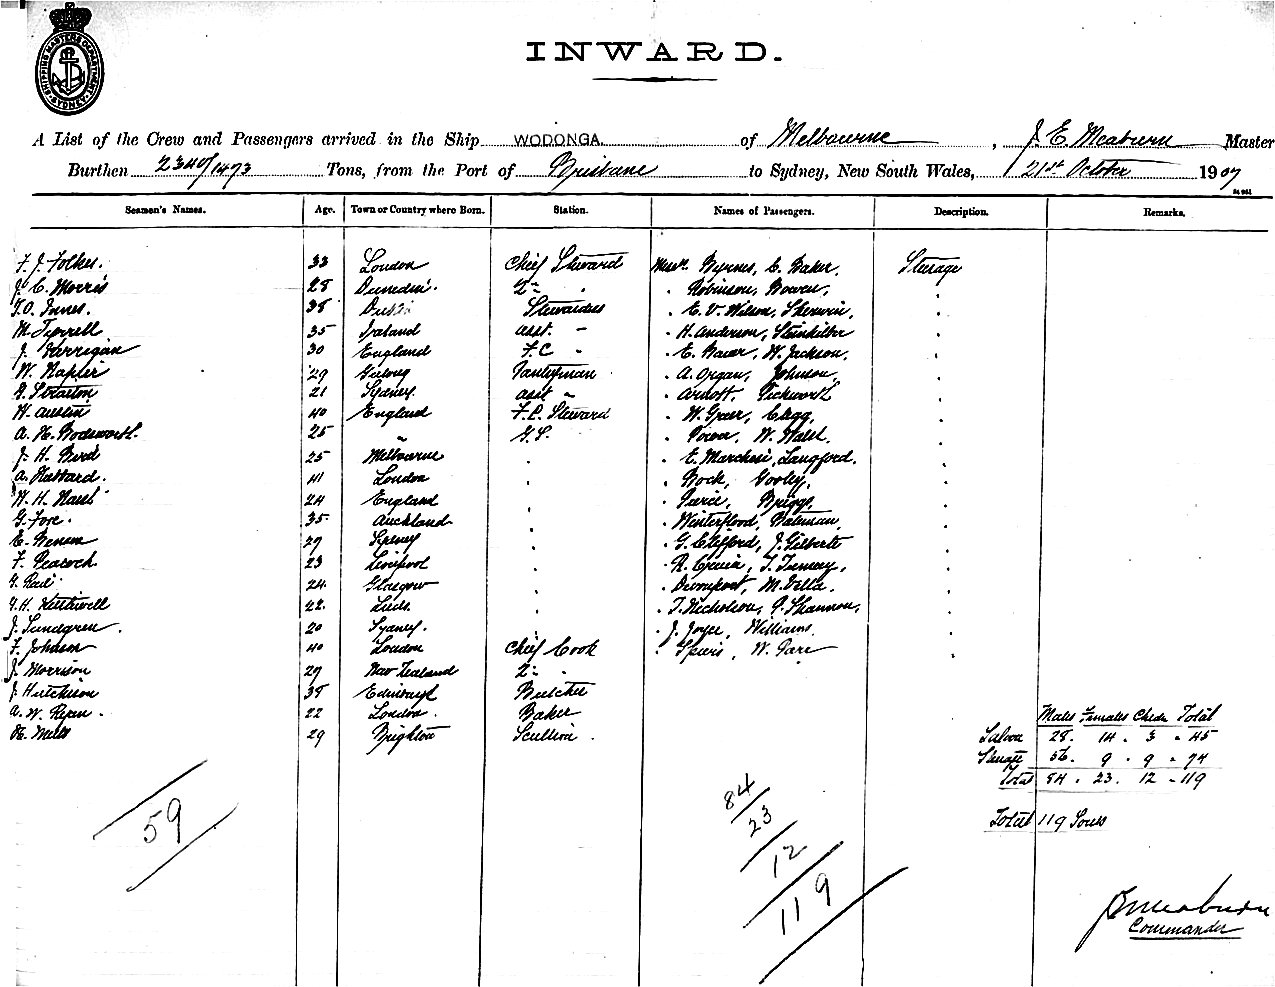 SHIPPING MASTERS DEPARTMENT SYDNEY
INWARD.
A List of the Crew and Passengers arrived in the Ship WODONGA of Melbourne, J. E. Meaburn Master
Burthen 2340/1473 Tons, from the Port of Brisbane to Sydney, New South Wales, 21st October 1907
Seamen's Names. Age. Town or Country where Born. Station. Names of Passengers. Description. Remarks.
F. J. Folkes. 33 London Chief Steward Messrs. Byrnes, C. Baker, Steerage
J. C. Morris 28 Dunedin 2nd " " Robinson, Bowen,
Innes. 38 Stewardess " E. V. Wilson, Sherwin,
M. Tyrrell 35 Ireland asst. " " H. Anderson,
J. Kerrigan 30 England F.C " " E. W. Jackson,
W. Napier 29 Geelong Pantryman " A. Organ, Johnson,
Stratton 21 Sydney asst " " Arnott, Pickworth
W. Austin 40 England F.C. Steward " W. Greer, Clegg
A. H. Wodsworth. 25 " G.S. " Power, W. Walsh,
J. H. Bird 25 Melbourne " " E. Marchesi, Langford.
A. Hubbard. 41 London " " Bock, Gooley,
W. H. 24 England " " Pierce, Briggs,
G. 35 Auckland " " Winterflood, Bateman,
E. Benson 29 Sydney " " G. Clifford, J. Gilberte
F. Peacock. 23 Liverpool " " T. Tierney,
24 Glasgow " " Davenport, M. Villa,
22. Leeds " " T. Nicholson, P. Shannon,
J. Lundgren. 20 Sydney. " " J. Joyce, Williams,
F. Johnson 40 London Chief Cook " W. Parr
J. Morrison 29 New Zealand 2nd "
J. Hutchison 38 Edinburgh Butcher
A. W. 22 London. Baker
H. Mills 29 Brighton Scullion.
Males Females Chdn Total
Saloon 28. 14. 3 = 45
Steerage 56. 9. 9 = 74
Total 84. 23. 12 = 119
Total 119 Souls
59
84
23
12
119
J. E. Meaburn
Commander